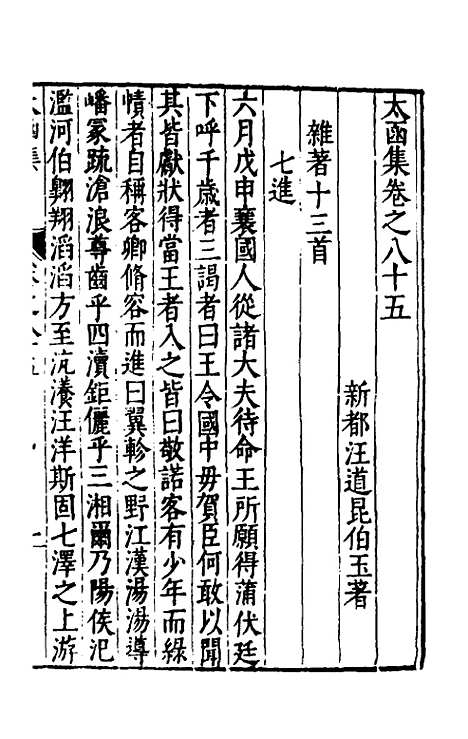 太函集卷之八十五
新都汪道昆伯玉著
雜著十三首
七進
六月戊申襄國人從諸大夫待命王所願得蒲伏廷
下呼千歲者三謁者曰王令國中毋賀臣何敢以聞
其皆獻狀得當王者入之皆曰敬諾客有少年而綠
幘者自稱客卿脩客而進曰翼軫之野江漢湯湯導
嶓冢疏滄浪尊齒乎四瀆鉅儷乎三湘爾乃陽侯氾
濫河伯翺翔滔滔方至沆瀁汪洋斯固七澤之上游